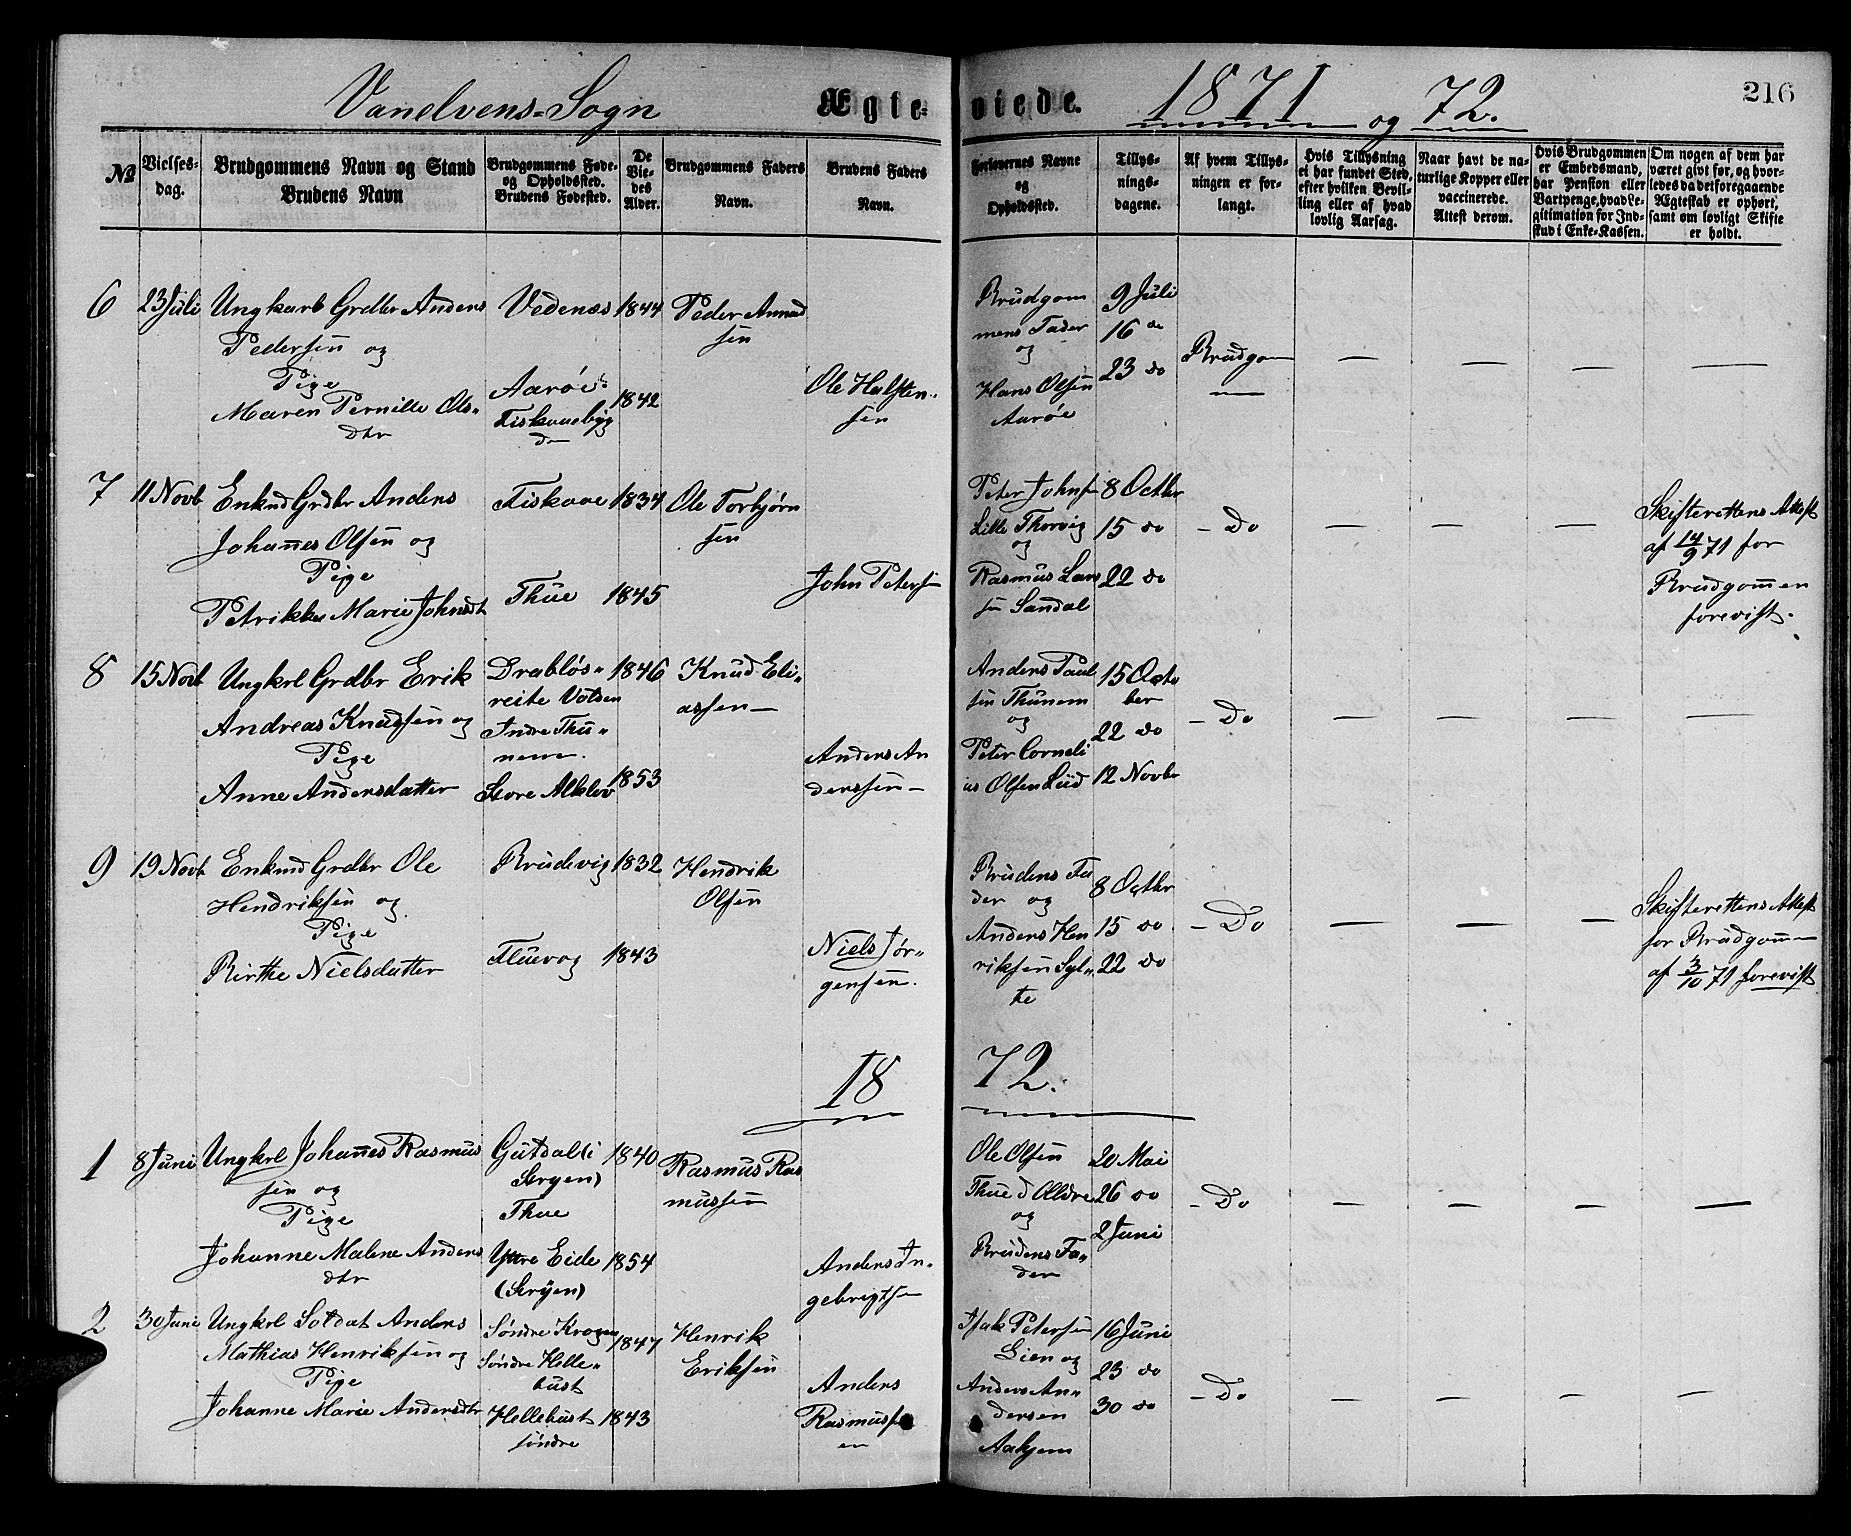 Vanelvens-Sogn Ægte- viede. 1871 og 72. 216
№
Vielses-
dag.
Brudgommens Navn og Stand
Brudens Navn
Brudgommens Føde-
og Opholdssted.
Brudens Fødested.
De
Vie-
des
Alder.
Brudgommens Faders
Navn.
Brudens Faders
Navn.
Forlovernes Navne
og
Opholdssted.
Tillys-
nings-
dagene.
Af hvem Tillys-
ningen er for-
langt.
Hvis Tillysning
ei har fundet Sted,
efter hvilken Bevil-
ling eller af hvad
lovlig Aarsag.
Naar havt de na-
turlige Kopper eller
vaccinerede.
Attest derom.
Hvis Brudgommen
er Embedsmand,
har Pension eller
Vartpenge, hvad Le-
gitimation for Ind-
skud i Enke-Kassen.
Om nogen af dem har
været givt før, og hvor-
ledes da det foregaaende
Ægteskab er ophørt,
samt om lovligt Skifte
er holdt.
6
23 Juli
Ungkarb Grdbr Anders
Pedersen og
Pige
Maren Pernille Ols-
dtr
Vedenæs
Aarøe
Fiskaaebyg
1844
1842
Peder Amund
sen
Ole Halsten-
sen
Brudgom
mens Fader
og
Hans Olsen
Aarøe
9 Juli
16 do
23 do
Brudgom
— — — —
7
11 Novb
Enkmd Grdbr Anders
Johannes Olsen og
Pige
Petrikke Marie Johnsdt
Fiskaae
Thue
1834
1845
Ole Torbjørn
sen
John Petersen
Peter Johnsen
Lille Thorvig
og
Rasmus Lars
sen Sandal
8 Octbr
15 do
22 do
- Do
— — —
Skifterettens Attest
af 14/9 71 for
Brudgommen
forevist.
8
15 Novb
Ungkrl Grdbr Erik
Andreas Knudsen og
Pige
Anne Andersdatter
Drabløs-
reite Volden
Indre Thu-
nem.
Store Alkløv
1846
1853
Knud Eli-
assen
Anders An
derssen
Anders Paul
sen Thunem
og
Peter Corneli
us Olsen Liid
15 Octo
ber
22 do
12 Novbr
- Do
— — — —
9
19 Novb
Enkmd Grdbr Ole
Hendriksen og
Pige
Birthe Nielsdatter
Brudevig
Fluevog
1832
1843
Hendrik
Olsen
Niels Jør-
gensen.
Brudens Fa
der og
Anders Hen
riksen Syl-
te
8 Octbr
15 do
22 do
- Do
— — —
Skifterettens Attest
for Brudgom-
af 3/10 71 forevist
18 72.
1
8 Juni
Ungkrl Johannes Rasmus
sen og
Pige
Johanne Malene Anders
dtr
Gutdal (i
Stryen)
Thue
Ytre Eide
(Stryen)
1840
1854
Rasmus Ras
mussen
Anders In-
gebrigtsen
Ole Olsen
Thue d Ældre
og
Brudens Fa-
der
20 Mai
26 do
2 Juni
- Do
— — — —
2
30 Juni
Ungkrl Soldat Anders
Mathias Henriksen og
Pige
Johanne Marie Andersdtr
Søndre Krogen
Søndre Helle-
bust
Hellebust
søndre
1847
1843
Henrik
Eriksen
Anders
Rasmuss
en
Isak Petersen
Lien og
Anders An-
dersen
Aahjem
16 Juni
23 do
30 do
- Do
— — — —